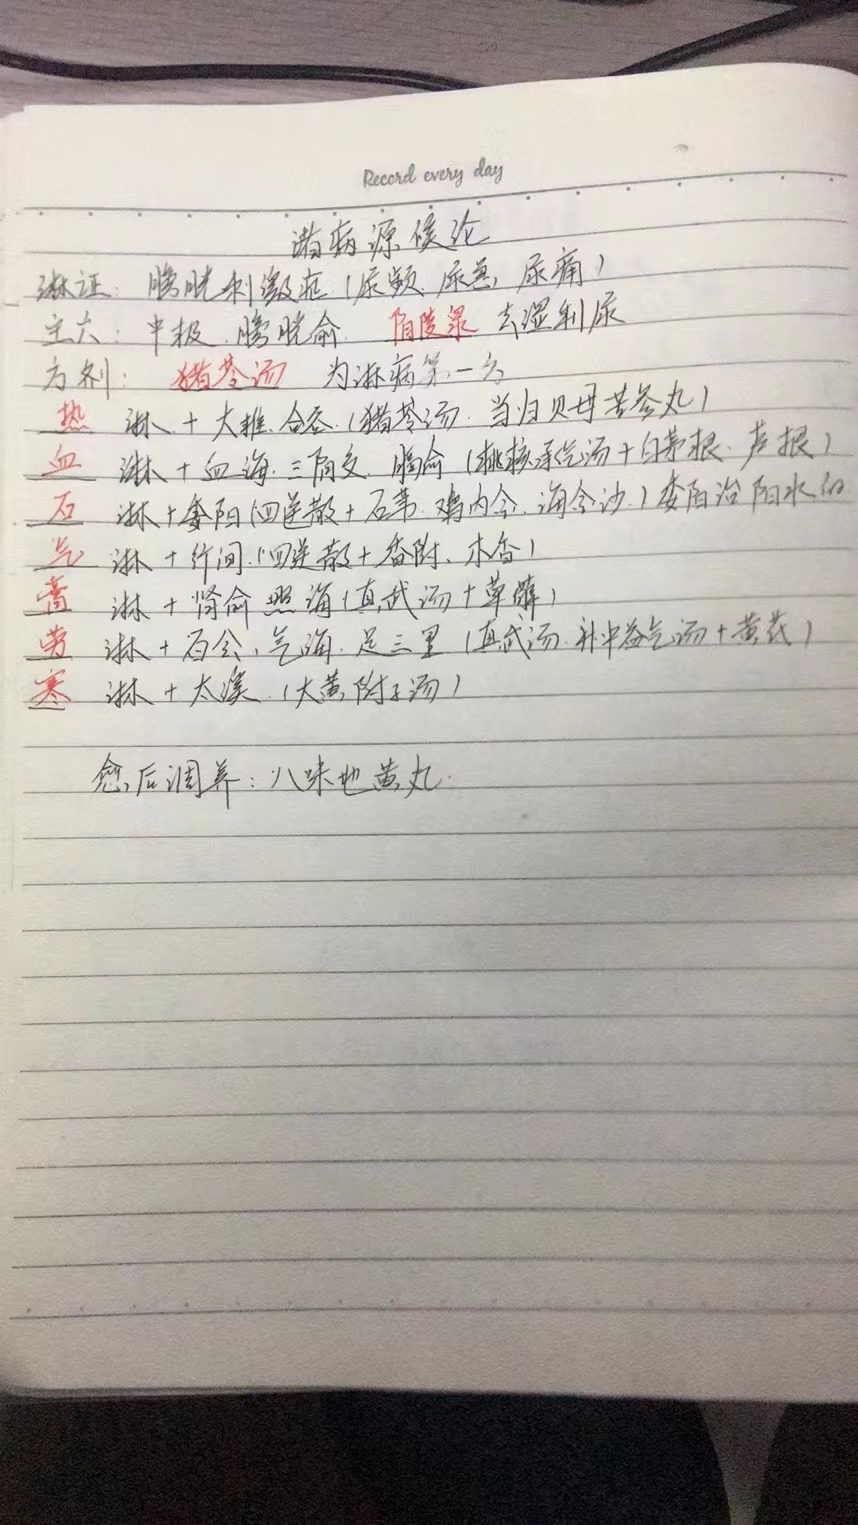 Record every day
诸病源候论
淋证：膀胱刺激症（尿频、尿急、尿痛）
主穴：中极、膀胱俞、阴陵泉 去湿利尿
方剂：猪苓汤 为淋病第一方
热 淋 + 大椎、合谷（猪苓汤、当归贝母苦参丸）
血 淋 + 血海、三阴交、膈俞（桃核承气汤+白茅根、芦根）
石 淋 + 委阳（四逆散+石苇、鸡内金、海金沙）委阳治阳水的
气 淋 + 行间（四逆散+香附、木香）
膏 淋 + 肾俞 照海（真武汤+草薢）
劳 淋 + 百会、气海、足三里（真武汤、补中益气汤+黄芪）
寒 淋 + 太溪（大黄附子汤）
愈后调养：八味地黄丸